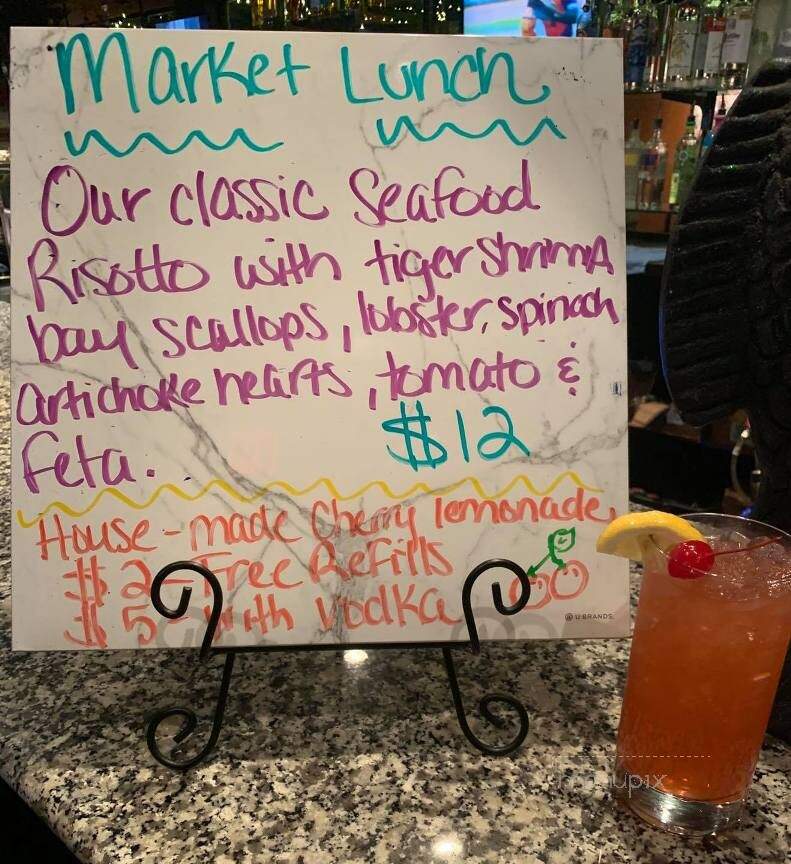 Market Lunch
Our classic Seafood
Risotto with tiger shrimp
bay scallops, lobster, spinach
artichoke hearts, tomato &
feta. $12
House-made Cherry lemonade
$2 - Free Refills
$5 - With Vodka
@ 12 BRANDS